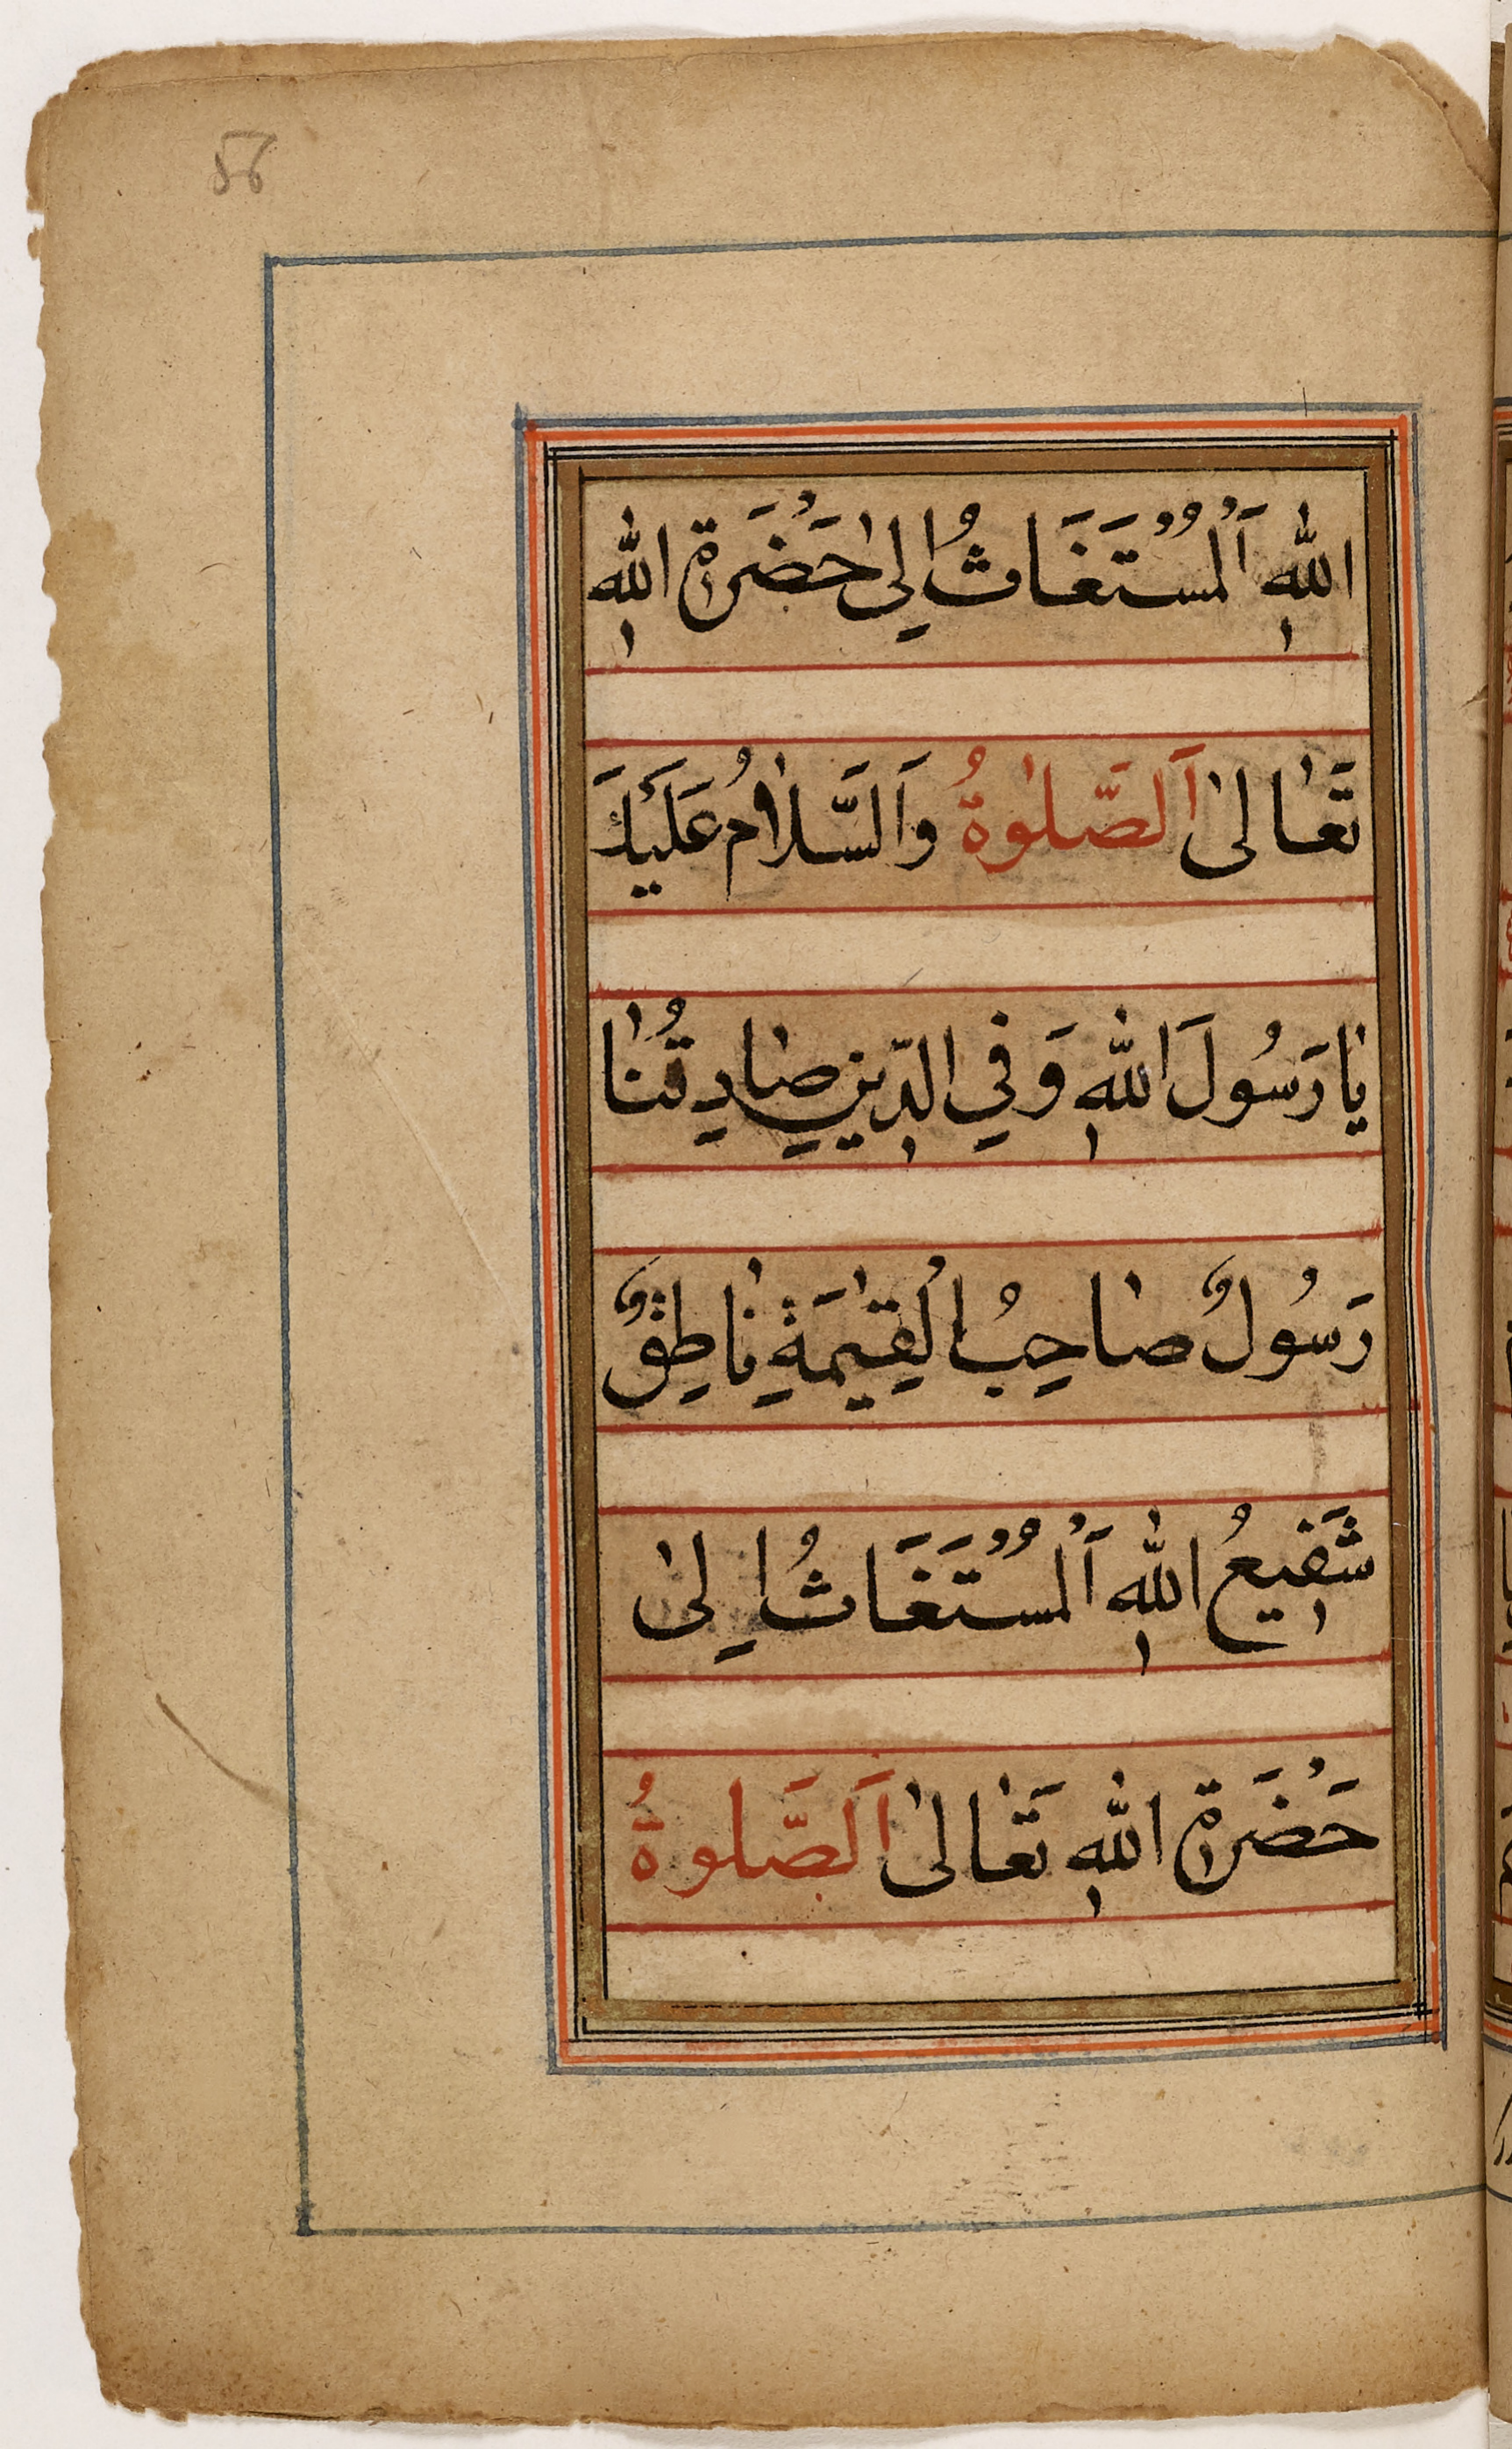 56
اللهِ اَلْمُسْتَغَاثُ اِلىٰ حَضْرَةِ اللهِ
تَعٰالىٰ اَلصَّلٰوةُ وَالسَّلٰامُ عَلَيْكَ
يٰا رَسُولَ اللهِ وَفِي الدِّينِ صٰادِقُنٰا
رَسُولٌ صٰاحِبُ الْقِيٰمَةِ نٰاطِقٌ
شَفِيعُ اللهِ اَلْمُسْتَغَاثُ اِلىٰ
حَضْرَةِ اللهِ تَعٰالىٰ اَلصَّلوةُ